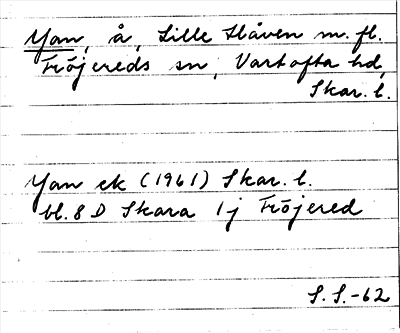 Yan, å, Lille Slåven m.fl.
Fröjereds sn, Vartofta hd,
Skar. l.
Yan ek (1961) Skar. l.
bl. 8 D Skara 1j Fröjered
S. S. -62